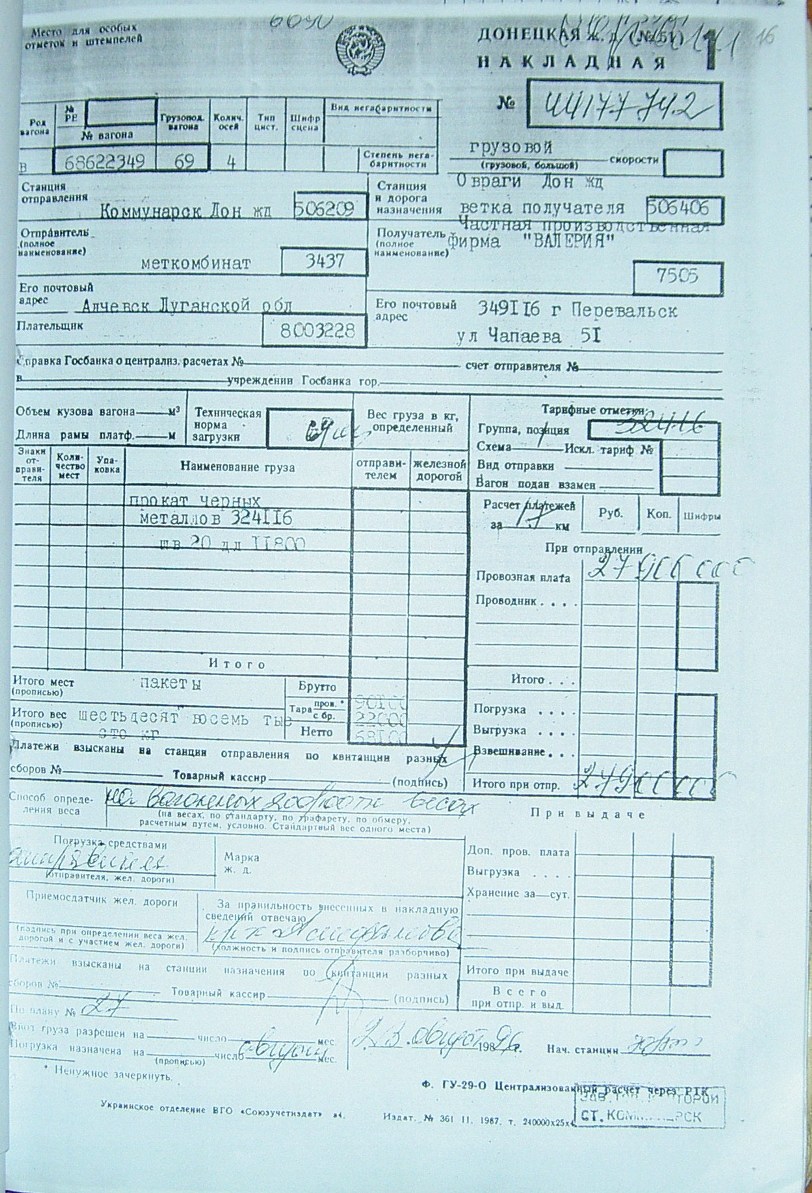 Место для особых
отметок и штемпелей
ДОНЕЦКАЯ ж. д.
НАКЛАДНАЯ
1
16
№ 44177742
Род вагона
№ РЕ
№ вагона
Грузопод. вагона
Колич. осей
Тип цист.
Шифр сцена
Вид негабаритности
Степень негабаритности
В 68622349 69 4
грузовой
(грузовой, большой) скорости
Станция отправления
Коммунарск Дон жд 506209
Станция и дорога назначения
Овраги Дон жд
ветка получателя 506406
Отправитель (полное наименование)
меткомбинат 3437
Получатель (полное наименование)
Частная производственная
фирма "ВАЛЕРИЯ"
7505
Его почтовый адрес
Алчевск Луганской обл
Плательщик 8003228
Его почтовый адрес
349II6 г Перевальск
ул Чапаева 5I
Справка Госбанка о централиз. расчетах № счет отправителя №
в учреждении Госбанка гор.
Объем кузова вагона м³
Длина рамы платф. м
Техническая норма загрузки
Вес груза в кг, определенный
Тарифные отметки:
Группа, позиция 32416
Схема Искл. тариф №
Вид отправки
Вагон подан взамен
Знаки отправителя
Количество мест
Упаковка
Наименование груза
отправителем
железной дорогой
прокат черных
металлов 324II6
шв 20 дл II800
Расчет платежей
за 17 км
Руб. Коп. Шифры
При отправлении
Провозная плата
Проводник . . . .
Итого
Итого . . .
Итого мест (прописью) пакеты
Брутто 90I00
Тара пров. * с бр. 22000
Нетто 68I00
Итого вес (прописью) шестьдесят восемь тыс
сто кг
Погрузка . . . .
Выгрузка . . . .
Взвешивание . . .
Платежи взысканы на станции отправления по квитанции разных
сборов № Товарный кассир (подпись)
Итого при отпр.
Способ определения веса на вагонных весах
(на весах, по стандарту, по трафарету, по обмеру,
расчетным путем, условно. Стандартный вес одного места)
При выдаче
Погрузка средствами
(отправителя, жел. дороги)
Марка ж. д.
Доп. пров. плата
Выгрузка . . . .
Хранение за—сут.
Приемосдатчик жел. дороги
(подпись при определении веса жел.
дорогой и с участием жел. дороги)
За правильность внесенных в накладную
сведений отвечаю
(должность и подпись отправителя разборчиво)
Платежи взысканы на станции назначения по квитанции разных
сборов № Товарный кассир (подпись)
Итого при выдаче
Всего
при отпр. и выд.
По плану № 27
Ввоз груза разрешен на число мес.
Погрузка назначена на число август мес.
(прописью)
23 август 96г.
Нач. станции
* Ненужное зачеркнуть.
Ф. ГУ-29-О Централизованный расчет через РТК
Украинское отделение ВГО «Союзучетиздат»
Издат. № 361 II. 1987, т. 240000х25х4